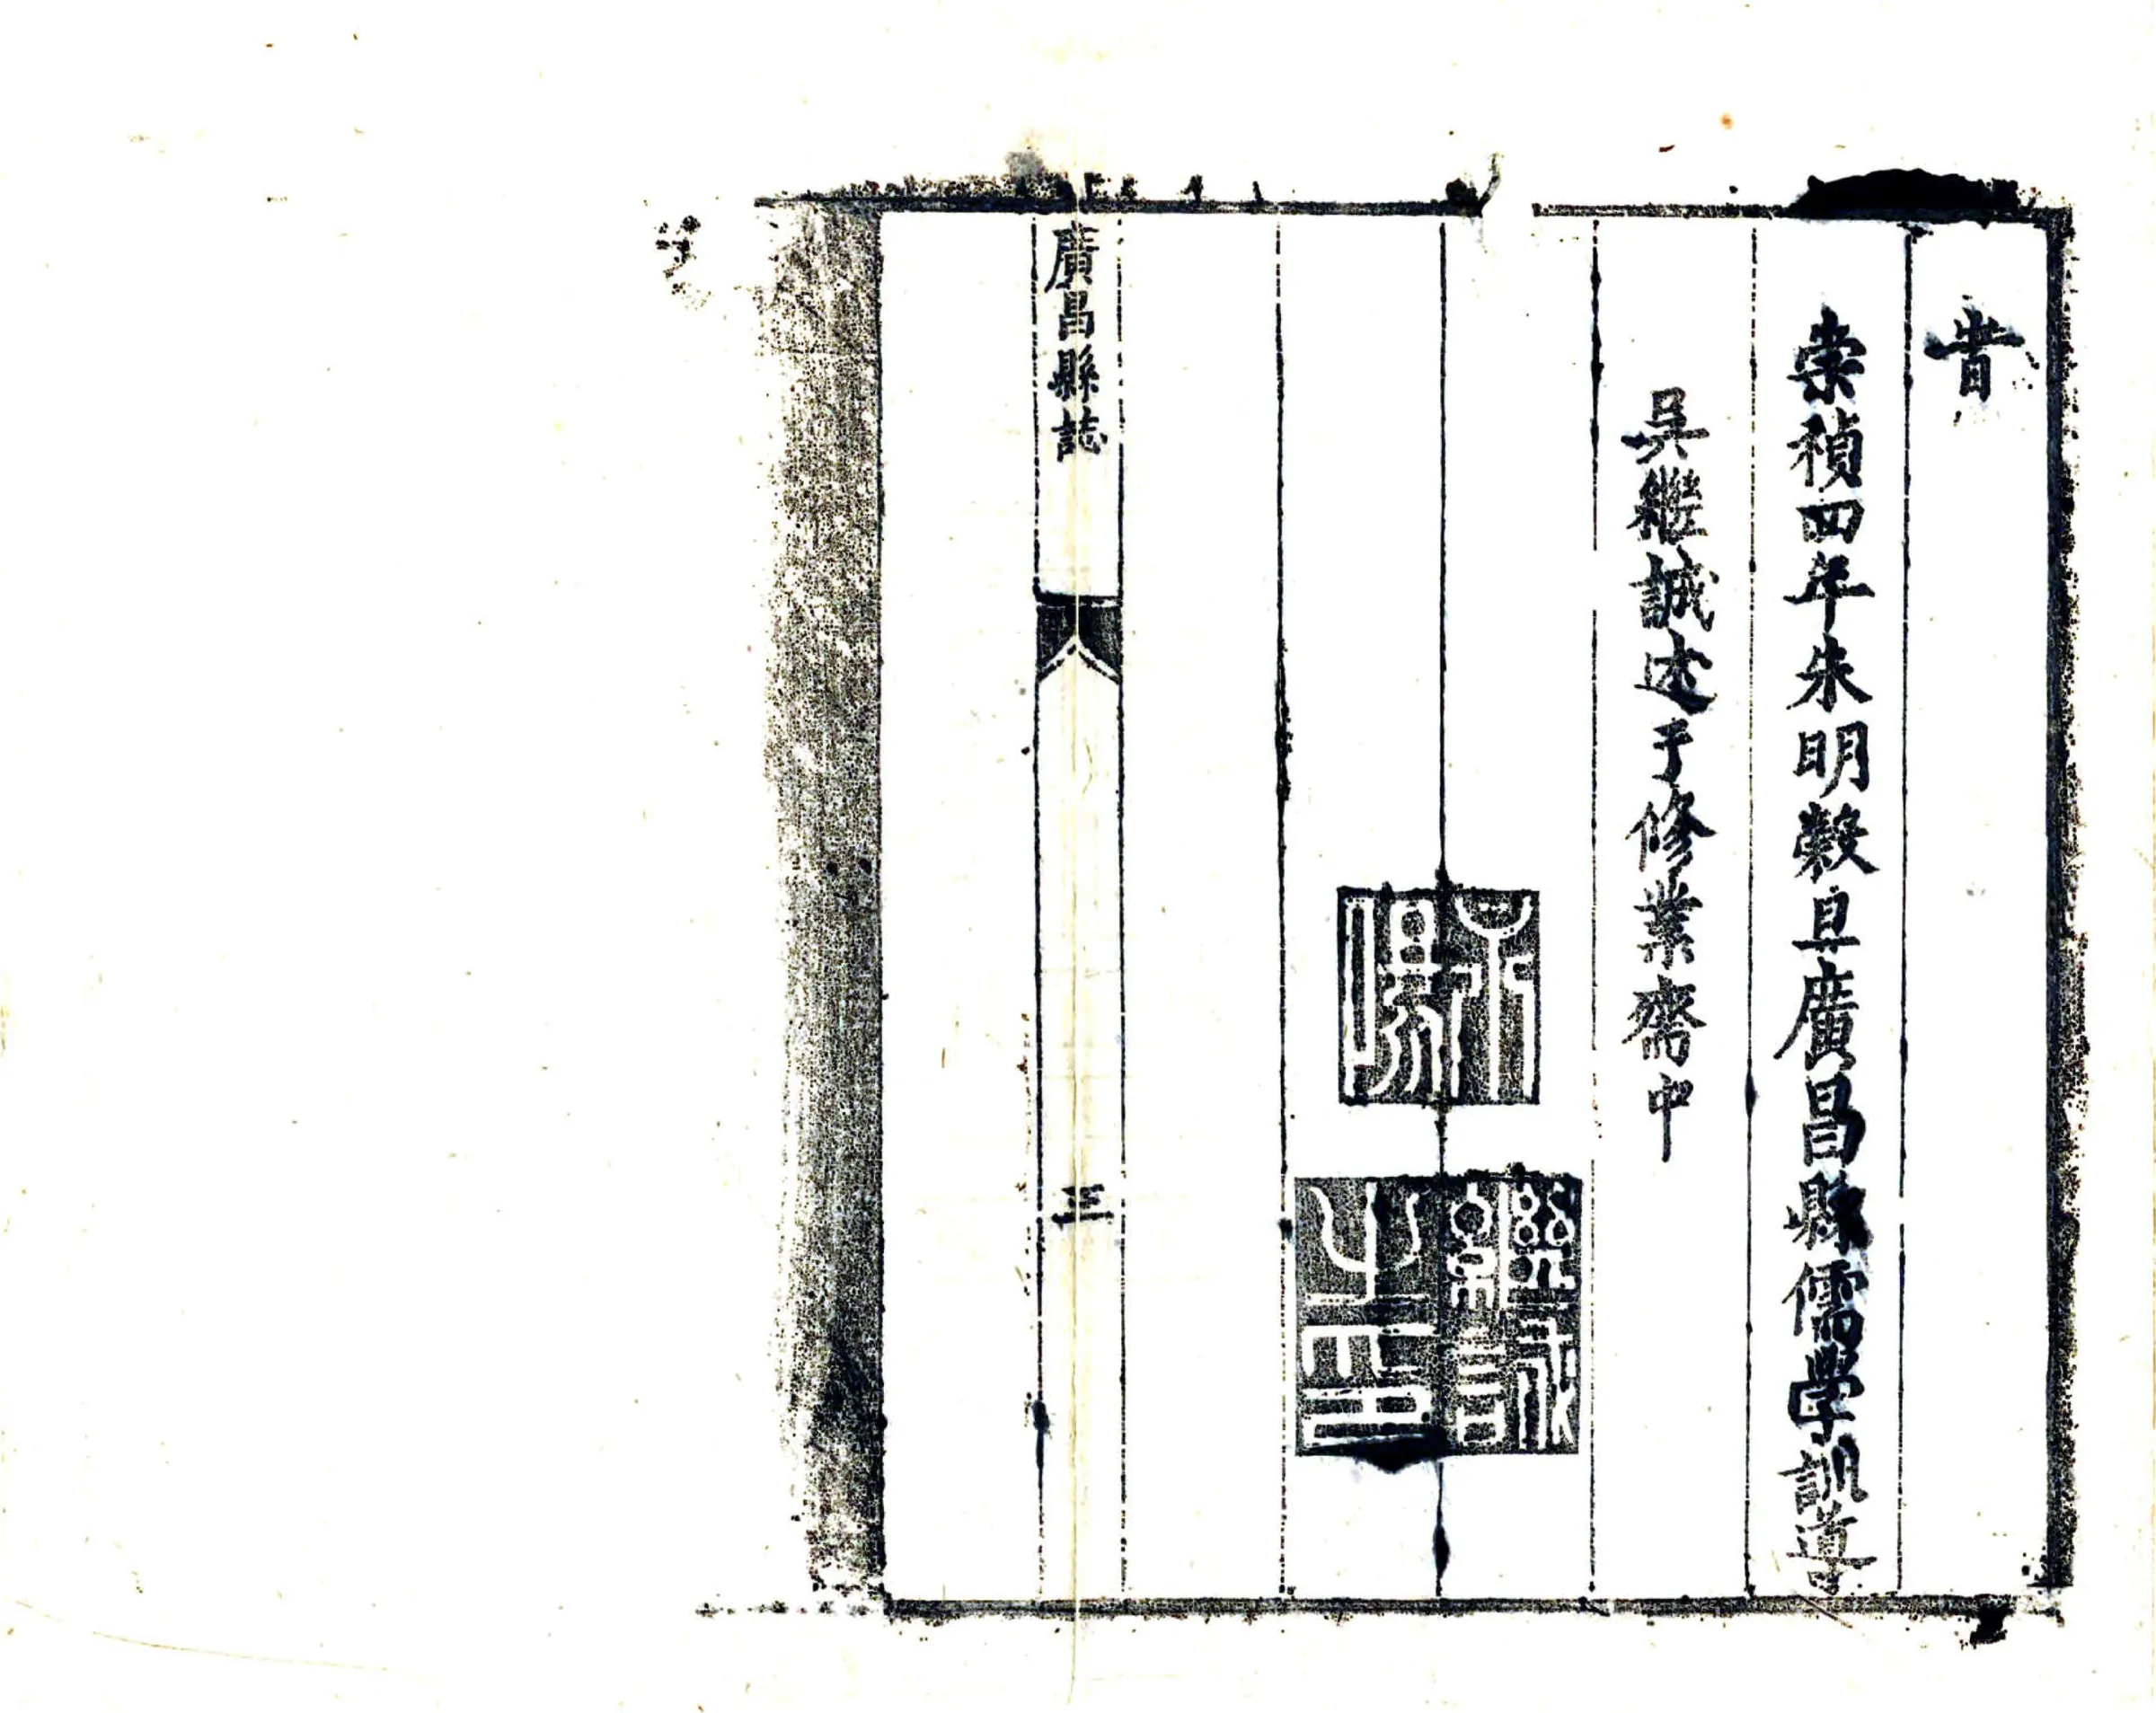 崇禎四年朱明穀旦廣昌縣儒學訓導
吳繼誠述于修業齋中
繼誠之印
廣昌縣誌
三